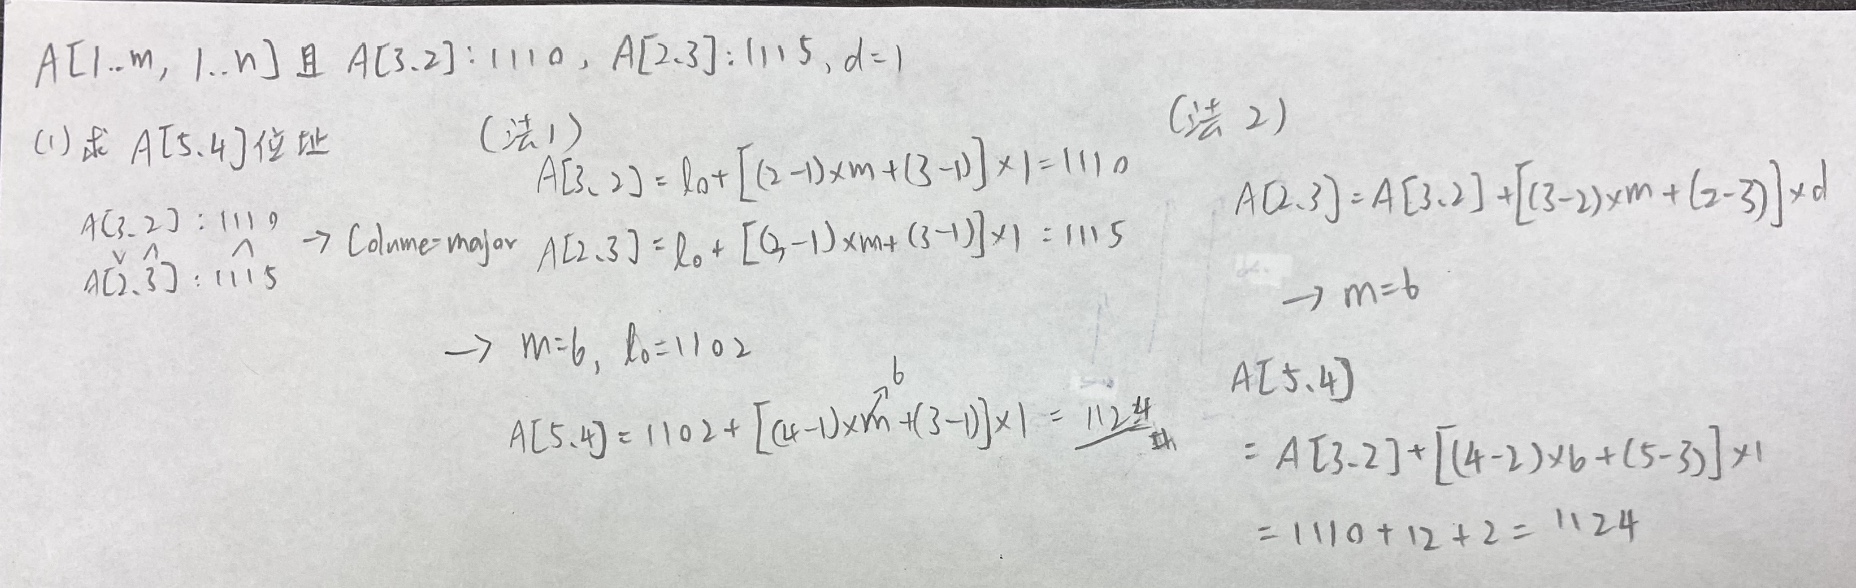 A[1..m, 1..n] 且 A[3.2]:1110, A[2.3]:1115, d=1
(1) 求 A[5.4] 位址
A[3.2]:1110
∨ ∧ ∧
A[2.3]:1115
→ Colume-major
(法1)
A[3.2] = l₀+[(2-1)×m+(3-1)]×1=1110
A[2.3] = l₀+[(3-1)×m+(3-1)]×1=1115
→ m=6, l₀=1102
6
A[5.4] = 1102+[(4-1)×m+(3-1)]×1 = 1124
(法2)
A[2.3]=A[3.2]+[(3-2)×m+(2-3)]×d
→ m=6
A[5.4]
= A[3.2]+[(4-2)×6+(5-3)]×1
= 1110+12+2= 1124